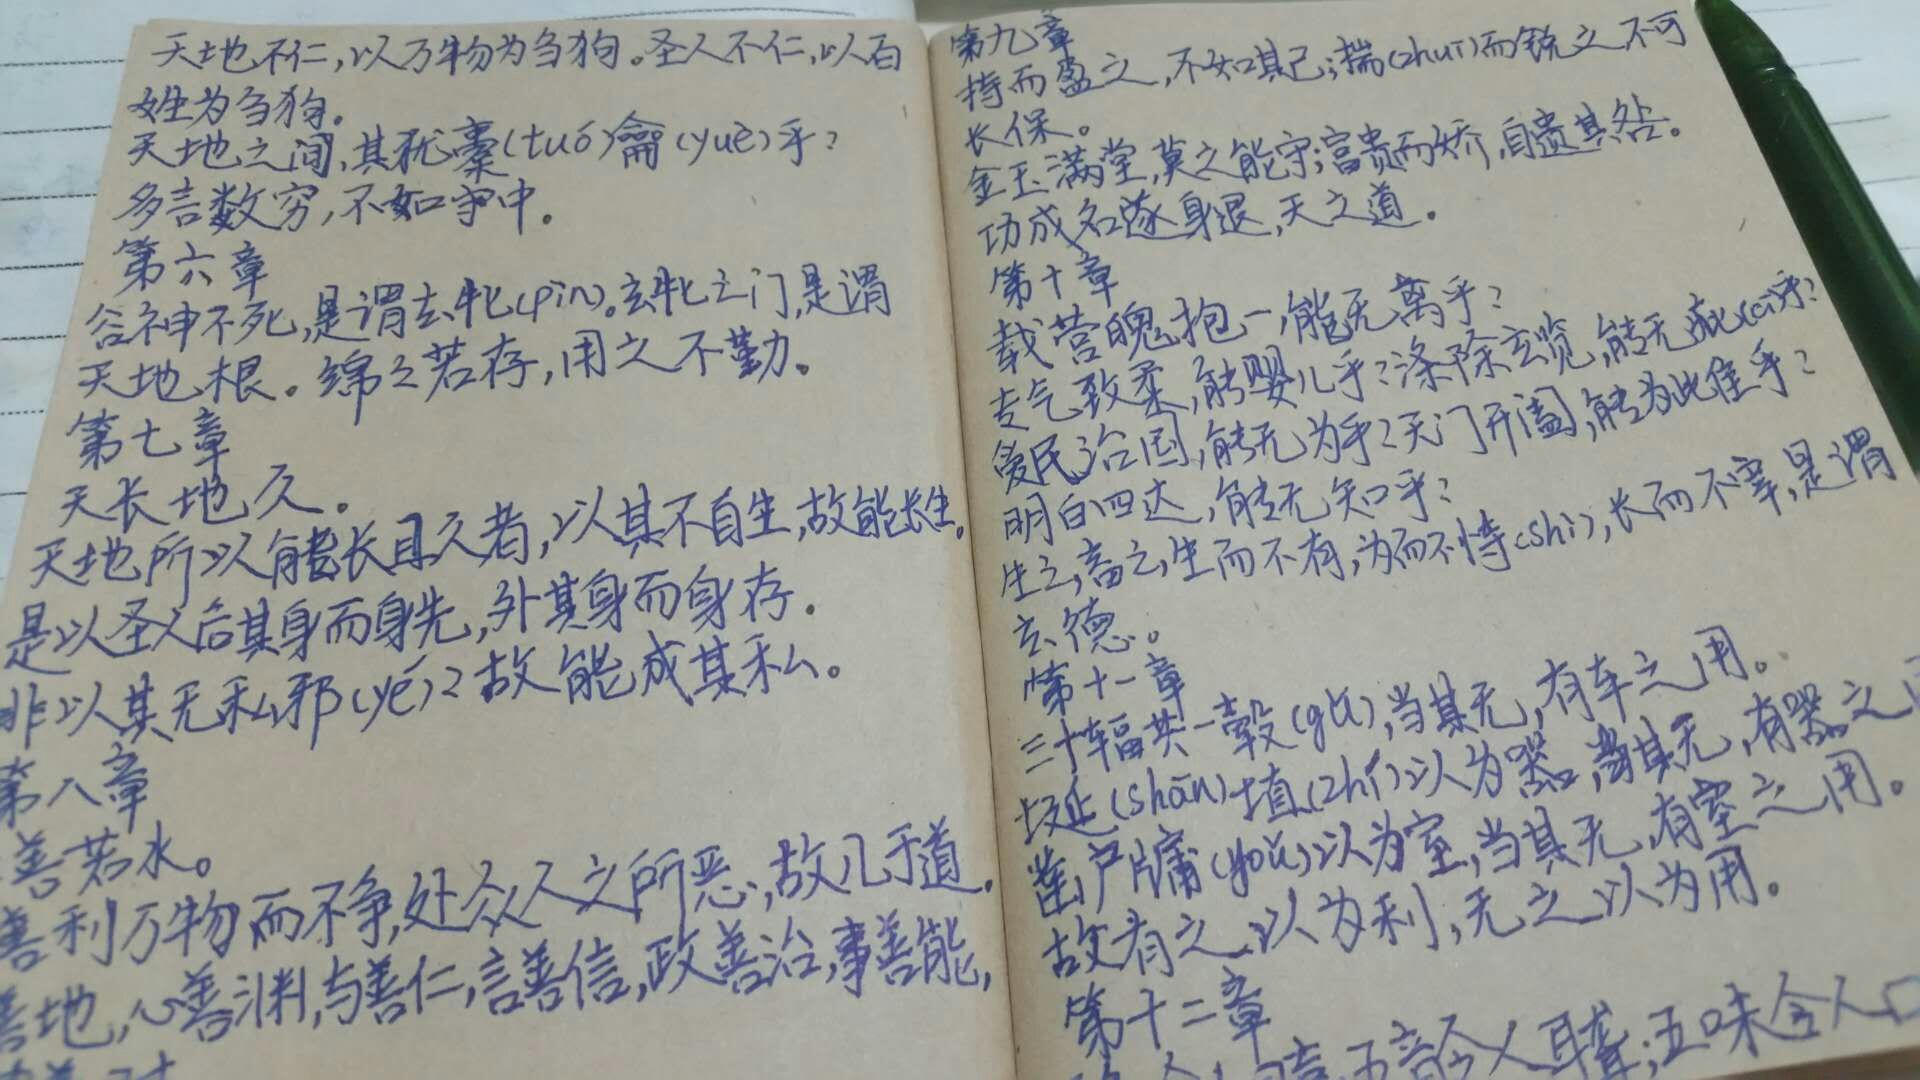 天地不仁,以万物为刍狗。圣人不仁,以百
姓为刍狗。
天地之间,其犹橐(tuó)龠(yuè)乎?
多言数穷,不如守中。
第六章
谷神不死,是谓玄牝(pìn)。玄牝之门,是谓
天地根。绵々若存,用之不勤。
第七章
天长地久。
天地所以能长且久者,以其不自生,故能长生。
是以圣人后其身而身先,外其身而身存。
非以其无私邪(yé)?故能成其私。
第八章
善若水。
善利万物而不争,处众人之所恶,故几于道。
善地,心善渊,与善仁,言善信,政善治,事善能,
第九章
持而盈之,不如其已;揣(zhuī)而锐之不可
长保。
金玉满堂,莫之能守;富贵而娇,自遗其咎。
功成名遂身退,天之道。
第十章
载营魄抱一,能无离乎?
专气致柔,能婴儿乎?涤除玄览,能无疵(cī)乎?
爱民治国,能无为乎?天门开阖,能为此隹乎?
明白四达,能无知乎?
生之,畜之,生而不有,为而不恃(shì),长而不宰,是谓
玄德。
第十一章
三十辐共一毂(gǔ),当其无,有车之用。
埏(shān)埴(zhí)以为器,当其无,有器之用
凿户牖(yǒu)以为室,当其无,有室之用。
故有之以为利,无之以为用。
第十二章
盲,五音令人耳聋;五味令人口